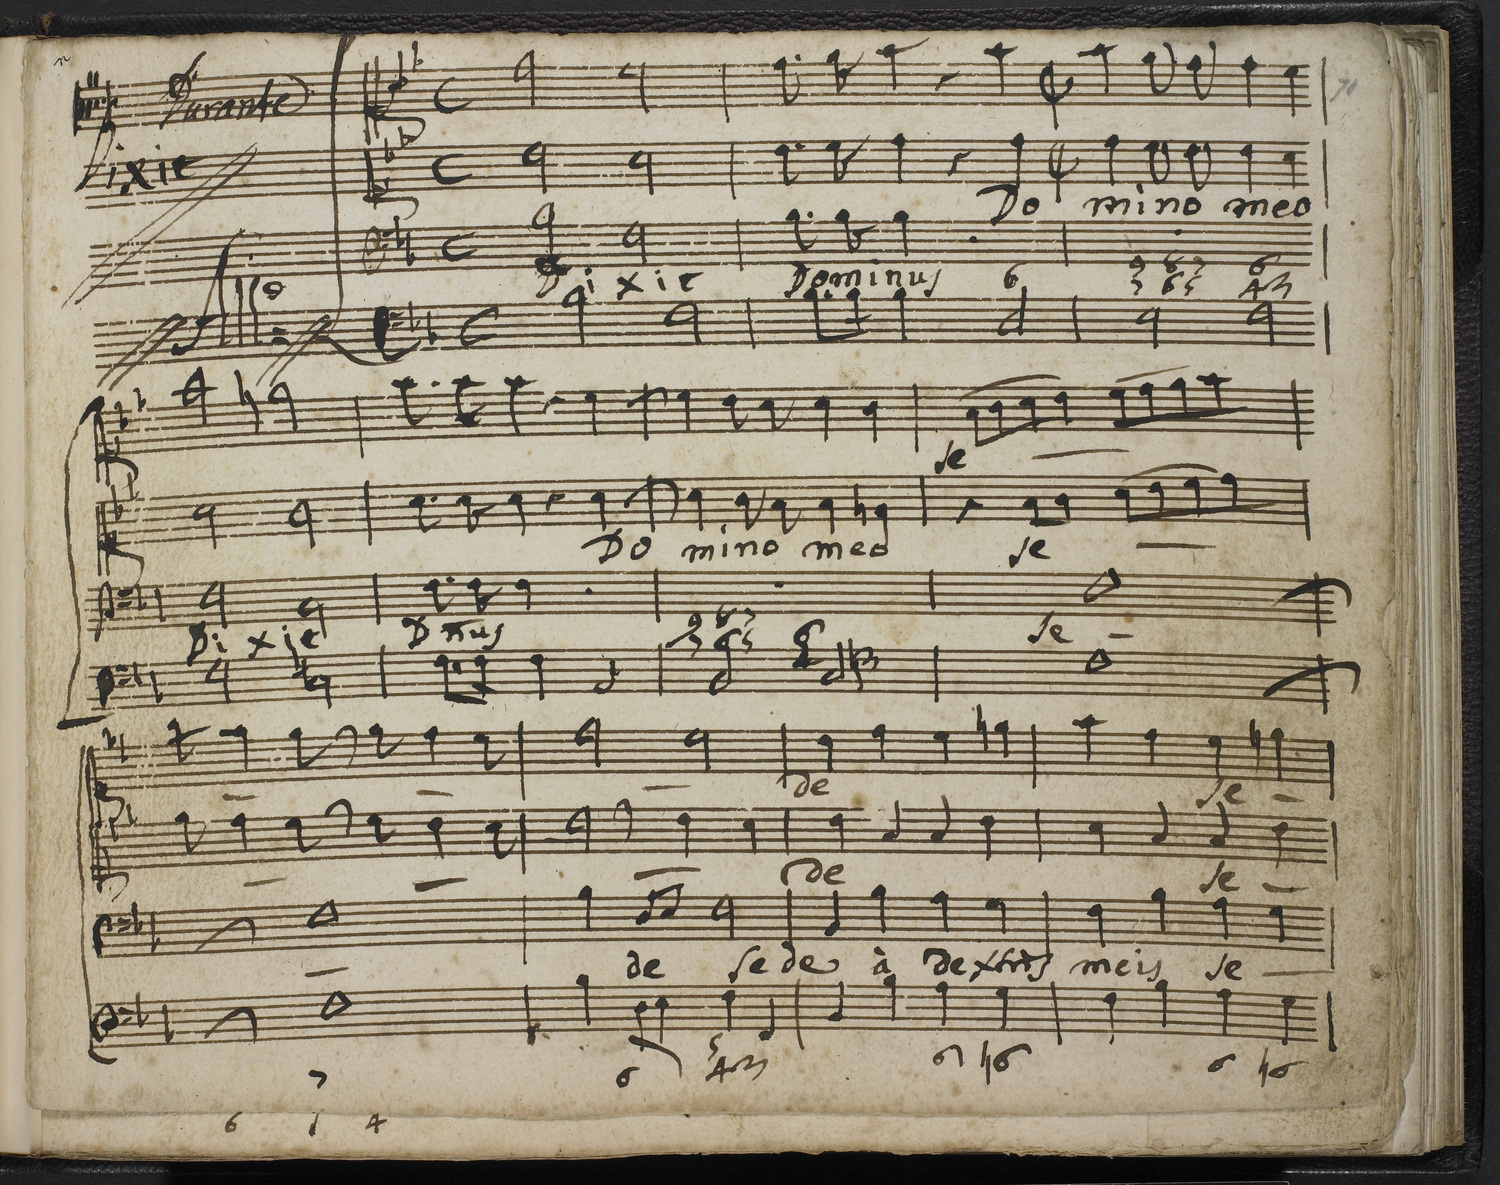 Durante
Dixit
Do mino meo
Di xit Dominus 6
se
Do mino meo se
Di xit Dnus se
de se
de se
de se de à dextris meis se
6 6 6
6 1 4